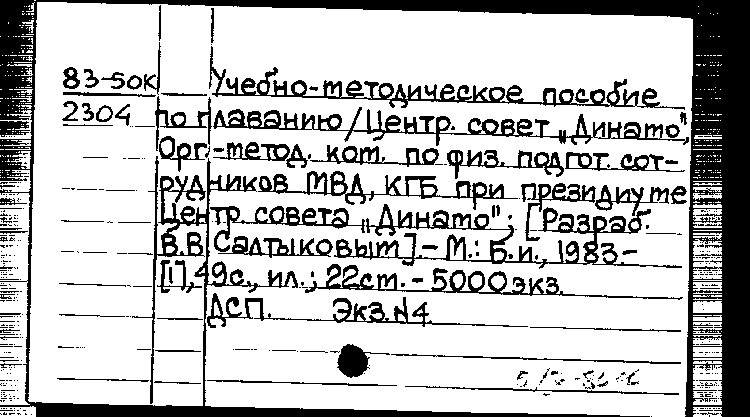 83-50к Учебно-методическое пособие
2304 по плаванию/Центр. совет „Динамо",
Орг.-метод. ком. по физ. подгот. сот-
рудников МВД, КГБ при президиуме
Центр. совета „Динамо"; [Разраб.
В.В. Салтыковым].- М.: Б.и., 1983.-
[1], 49с., ил.; 22см. - 5000 экз.
ДСП. Экз. №4.